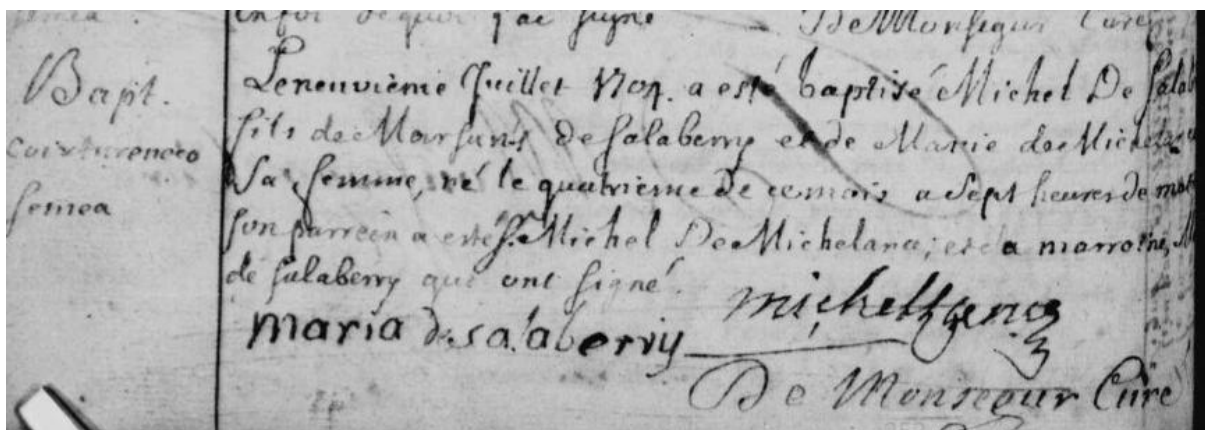 en foi de quoi j'ai signé De Monsegur Curé
Bapt.
semea
Le neuvième Juillet 1704. a esté baptisé Michel De Salab
fils de Marsans de Salaberry et de Marie de Michelana
Sa femme, né le quatrieme de ce mois a Sept heures de mat
son parrein a esté Sr. Michel De Michelana, et la marreine, M
de Salaberry qui ont signé.
maria de salaberriy
De Monsegur Curé